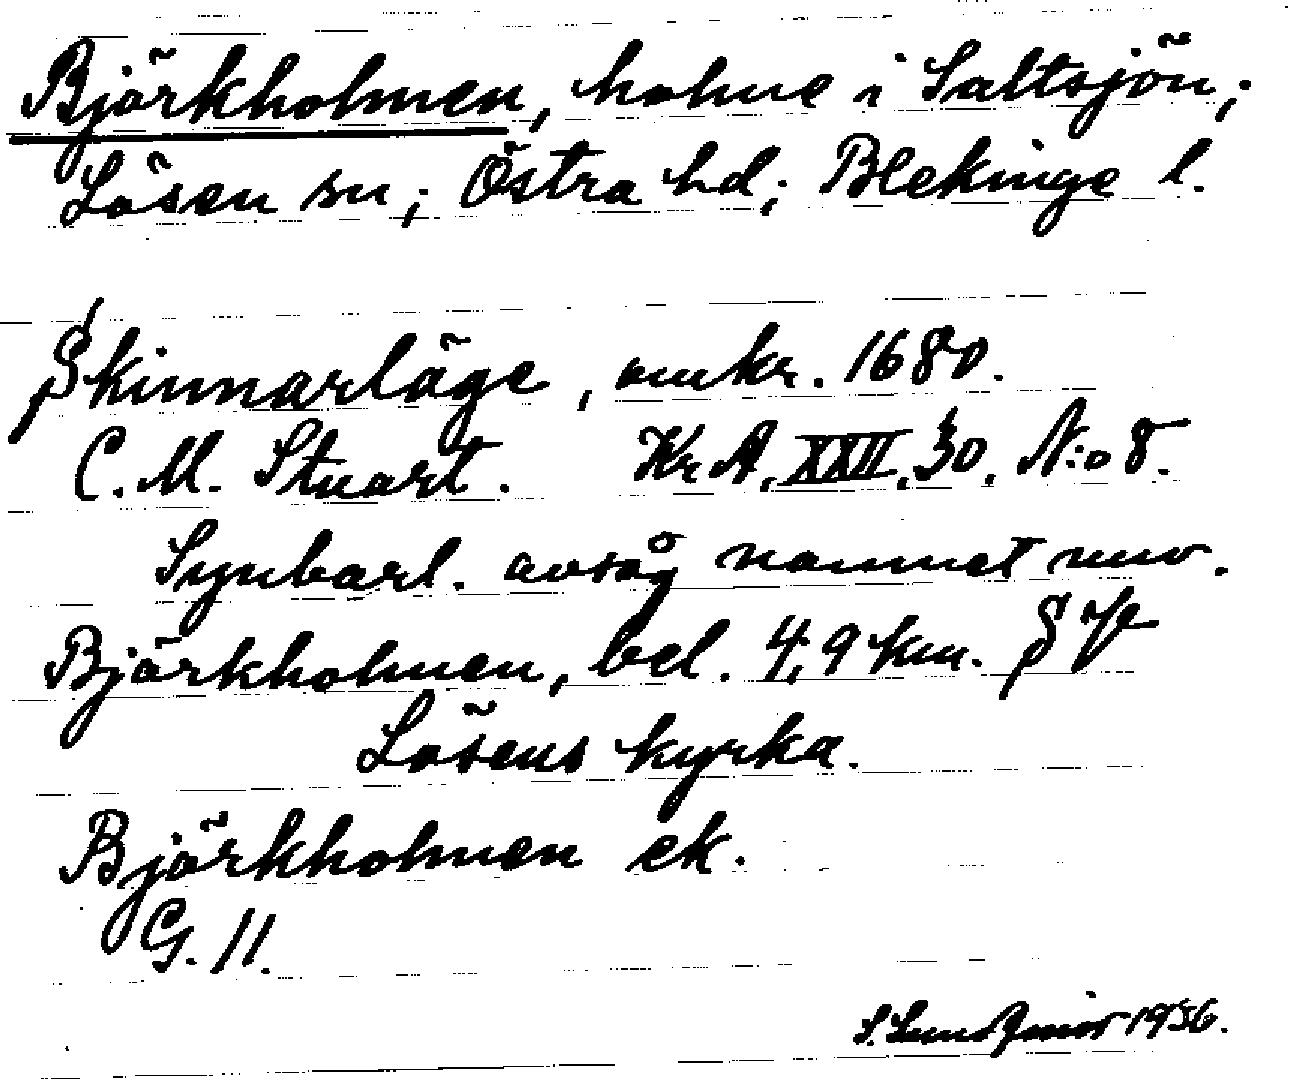 Björkholmen, holme i Saltsjön;
Lösen sn; Östra hd; Blekinge l.
Skinnarläge, omkr. 1680.
C. M. Stuart. Kr A, XXII, 30, N:o 8.
Synbarl. avsåg namnet nuv.
Björkholmen, bel. 4,9 km. SV
Lösens kyrka.
Björkholmen ek.
G. 11.
S. 1956.